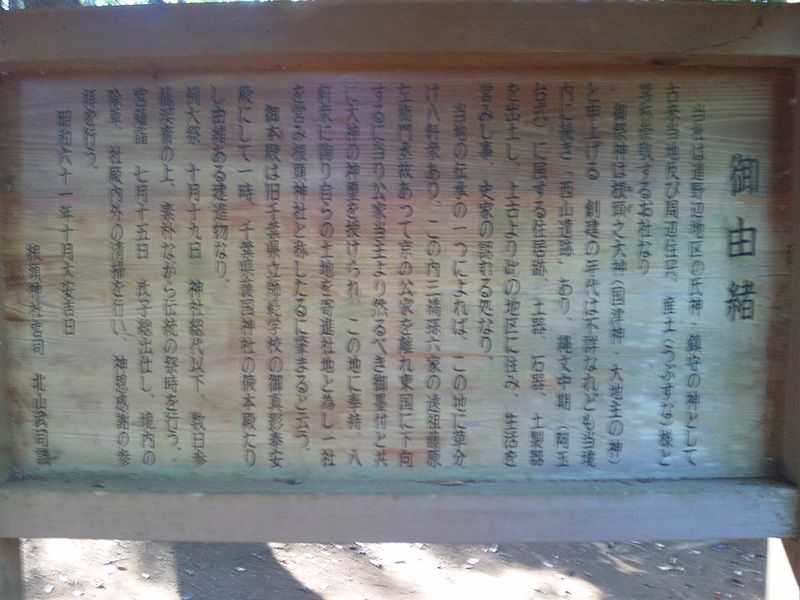 御由緒
当社は道野辺地区の氏神・鎮守の神として
古来当地及び周辺住民、産土(うぶすな)様と
尊称崇敬するお社なり
御祭神は根頭之大神(国津神・大地主の神)
と申上げる 創建の年代は不詳なれども当境
内に接き「西山遺跡」あり、縄文中期(阿玉
台式)に属する住居跡、土器、石器、土製器
を出土し、上古より此の地区に住み、生活を
営みし事、史家の認むる処なり
当地の伝承の一つによれば、この地に草分
け八軒衆あり、この内三橋孫六家の遠祖藤原
左衛門永故あって京の公家を離れ東国に下向
するに当り公家当主より然るべき御墨付と共
に大神の神璽を授けられ、この地に奉持、八
軒衆に諮り自らの土地を寄進社地と為し一社
を営み根頭神社と称したるに肇まると云う、
御本殿は旧千葉県立師範学校の御真影奉安
殿にして一時、千葉県護国神社の仮本殿たり
し由緒ある建造物なり。
例大祭 十月十九日 神社総代以下、数日参
籠潔斎の上、素朴ながら伝統の祭時を行う、
宮薙詣 七月十五日 氏子総出仕し、境内の
除草、社殿内外の清掃を行い、神恩感謝の参
拝を行う。
昭和六十一年十月大安吉日
根頭神社宮司 北山武司